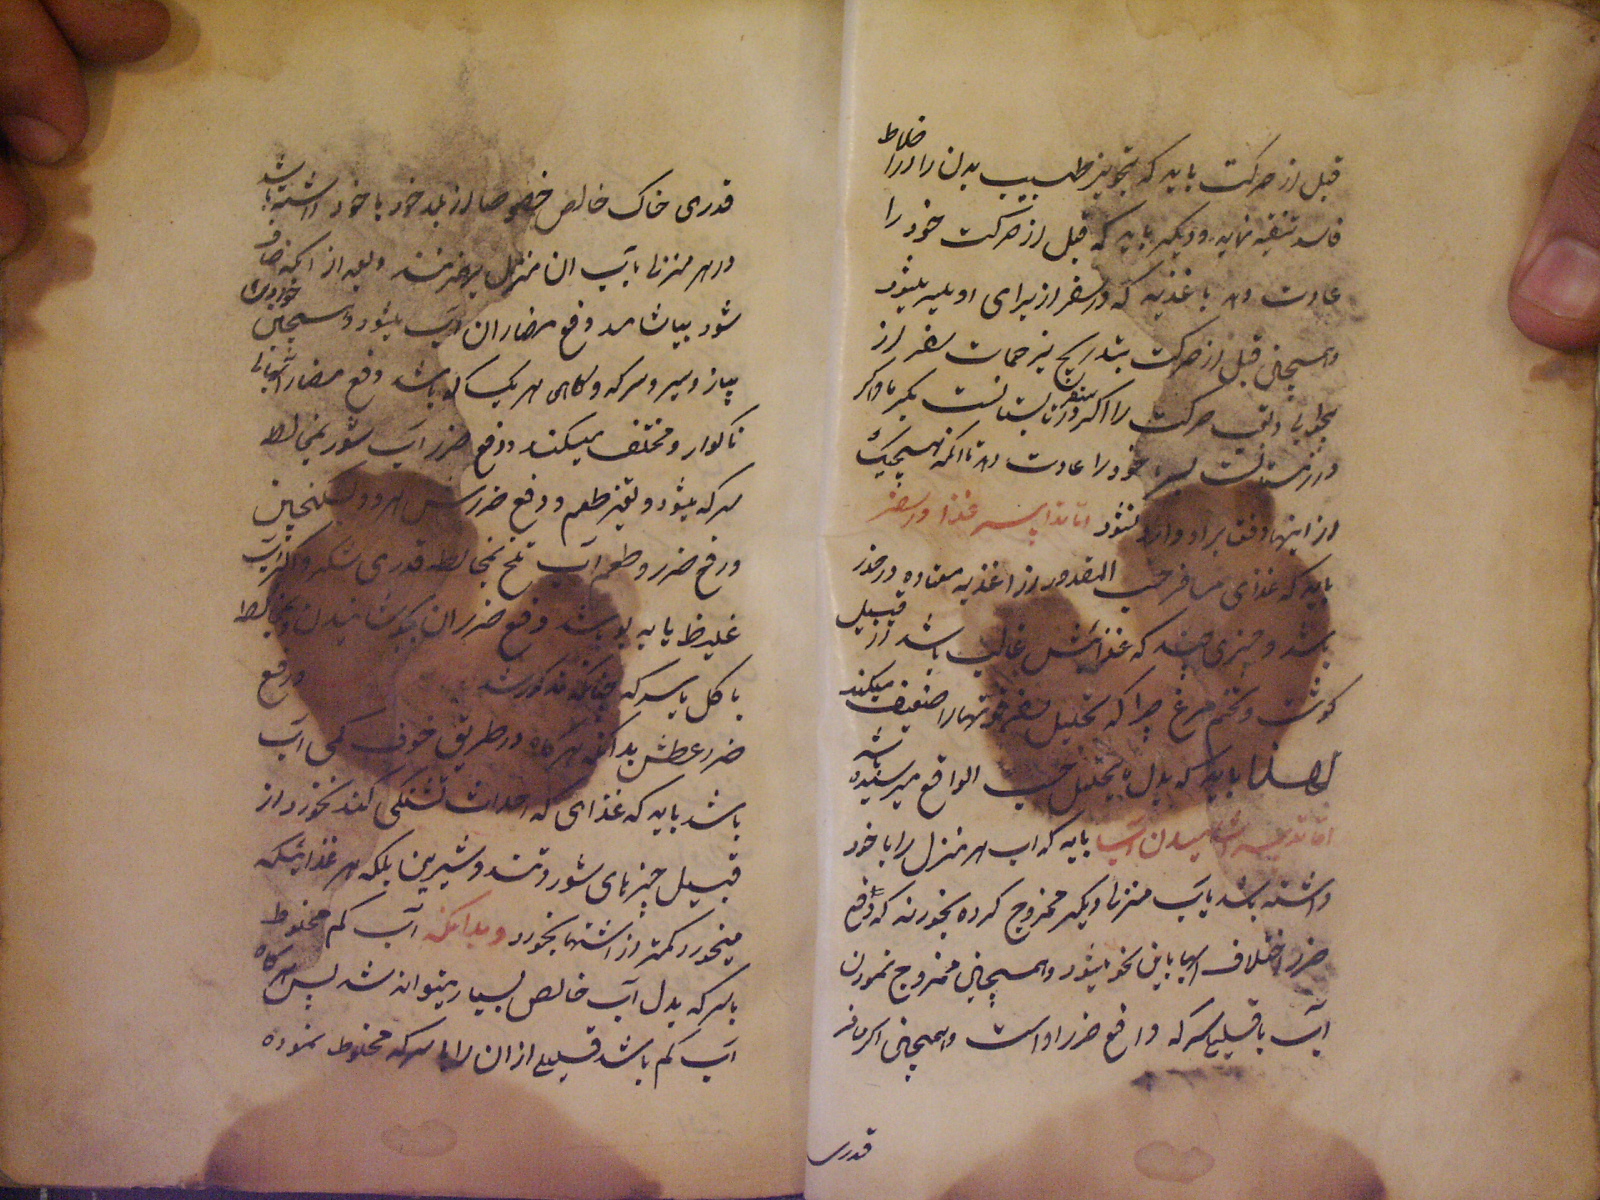 قبل از حرکت باید که بتجویز طبیب بدن را از اخلاط
فاسد تنقیه نماید و دیگر باید که قبل از حرکت خود را
عادت دهد باغذیه که در سفر از برای او میسر میشود
و همچنین قبل از حرکت بتدریج بزحمات سفر از
حرکت را اگر در تابستانست بگرما و اگر
در زمستانست بسرما خود را عادت دهد تا آنکه هیچیک
از اینها دفعة بر او وارد نشود اما تدابیر غذا در سفر
باید که غذای مسافر حتی المقدور از اغذیه معتاده در حضر
باشد و چیزی چند که غذائیتش غالب باشد از قبیل
گوشت و تخم مرغ چرا که تحلیل سفر قوتها را ضعیف میکند
لهذا باید که بدل ما یتحلل حسب الواقع میرسیده باشد
اما تدبیر آشامیدن آب باید که آب هر منزل را با خود
داشته باشد با آب منزل دیگر ممزوج کرده بخورند که دفع
ضرر اختلاف آبها باین نحو میشود و همچنین ممزوج نمودن
آب با قلیلی سرکه دافع ضرر او است و همچنین اگر مسافر
قدری
قدری خاک خالص خصوصا از بلد خود با خود داشته باشد
در هر منزل با آب ان منزل بهم زنند و بعد از آنکه صاف
شود بیاشامد دفع مضار ان آب میشود و همچنین خوردن
پیاز و سیر و سرکه و کاهو هر یک که باشد دفع مضار آبهای
ناگوار و مختلف میکند و دفع ضرر آب شور بمخالطه
سرکه میشود و تغیر طعم و دفع ضررش هر دو بسکنجبین
و دفع ضرر و طعم آب تلخ بمخالطه قدری شکر و اگر آب
غلیظ یا بد بو باشد دفع ضرر ان بجوشانیدن و مخالطه
با گل یا سرکه چنانکه مذکور شد و دفع
ضرر عطش بدانکه هر گاه در طریق خوف کمی آب
باشد باید که غذای که احداث تشنگی کند نخورد از
قبیل چیزهای شور و تند و شیرین بلکه هر غذائیکه
میخورد کمتر از اشتها بخورد و بدانکه آب کم مخلوط
با سرکه بدل آب خالص بسیار میتواند شد پس هر گاه
آب کم باشد قلیلی از ان را با سرکه مخلوط نموده